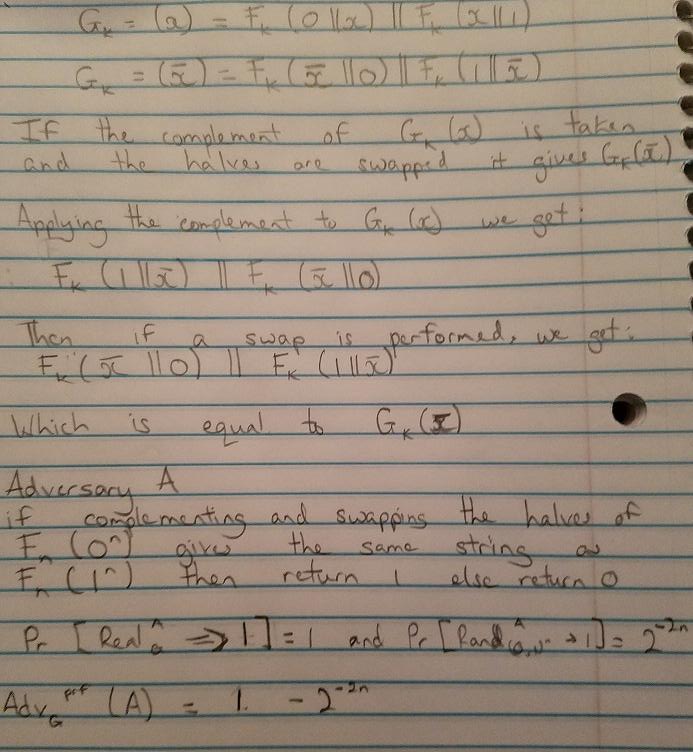 G_K = (x) = F_K (0||x) || F_K (x||1)
G_K = (x̄) = F_K (x̄ ||0) || F_K (1|| x̄)
If the complement of G_K (x) is taken
and the halves are swapped it gives G_K(x̄)
Applying the complement to G_K (x) we get:
F_K (1||x̄) || F_K (x̄ ||0)
Then if a swap is performed, we get:
F_K (x̄ ||0) || F_K (1||x̄)
Which is equal to G_K (x̄)
Adversary A
if complementing and swapping the halves of
F_n (0^n) gives the same string as
F_n (1^n) then return 1 else return 0
Pr [Real_G^A ⇒ 1] = 1 and Pr [Rand^A → 1] = 2^-2n
Adv_G^prf (A) = 1 - 2^-2n